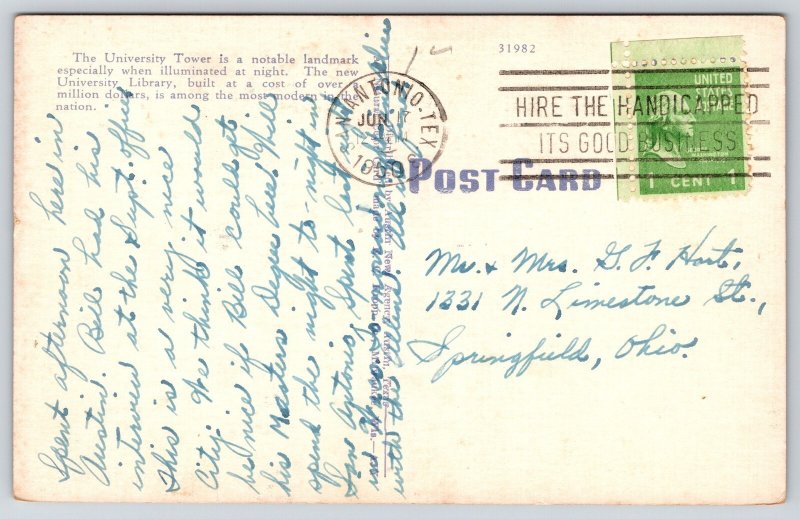 The University Tower is a notable landmark
especially when illuminated at night. The new
University Library, built at a cost of over
million dollars, is among the most modern in the
nation.
31982
SAN ANTONIO, TEX.
JUN 17
1950
HIRE THE HANDICAPPED
ITS GOOD BUSINESS
UNITED
STATES
1 CENT 1
POST CARD
Mr. & Mrs. G. F. Hart,
1331 N. Limestone St.,
Springfield, Ohio.
Spent afternoon here in
Austin. Bill had his
interview at the Supt. office
This is a very nice
City. We think it would
be nice if Bill could get
his Masters Degree here. Will
spend the night to-night in
San Antonio. Spent last
in Waco
with the Allens. All